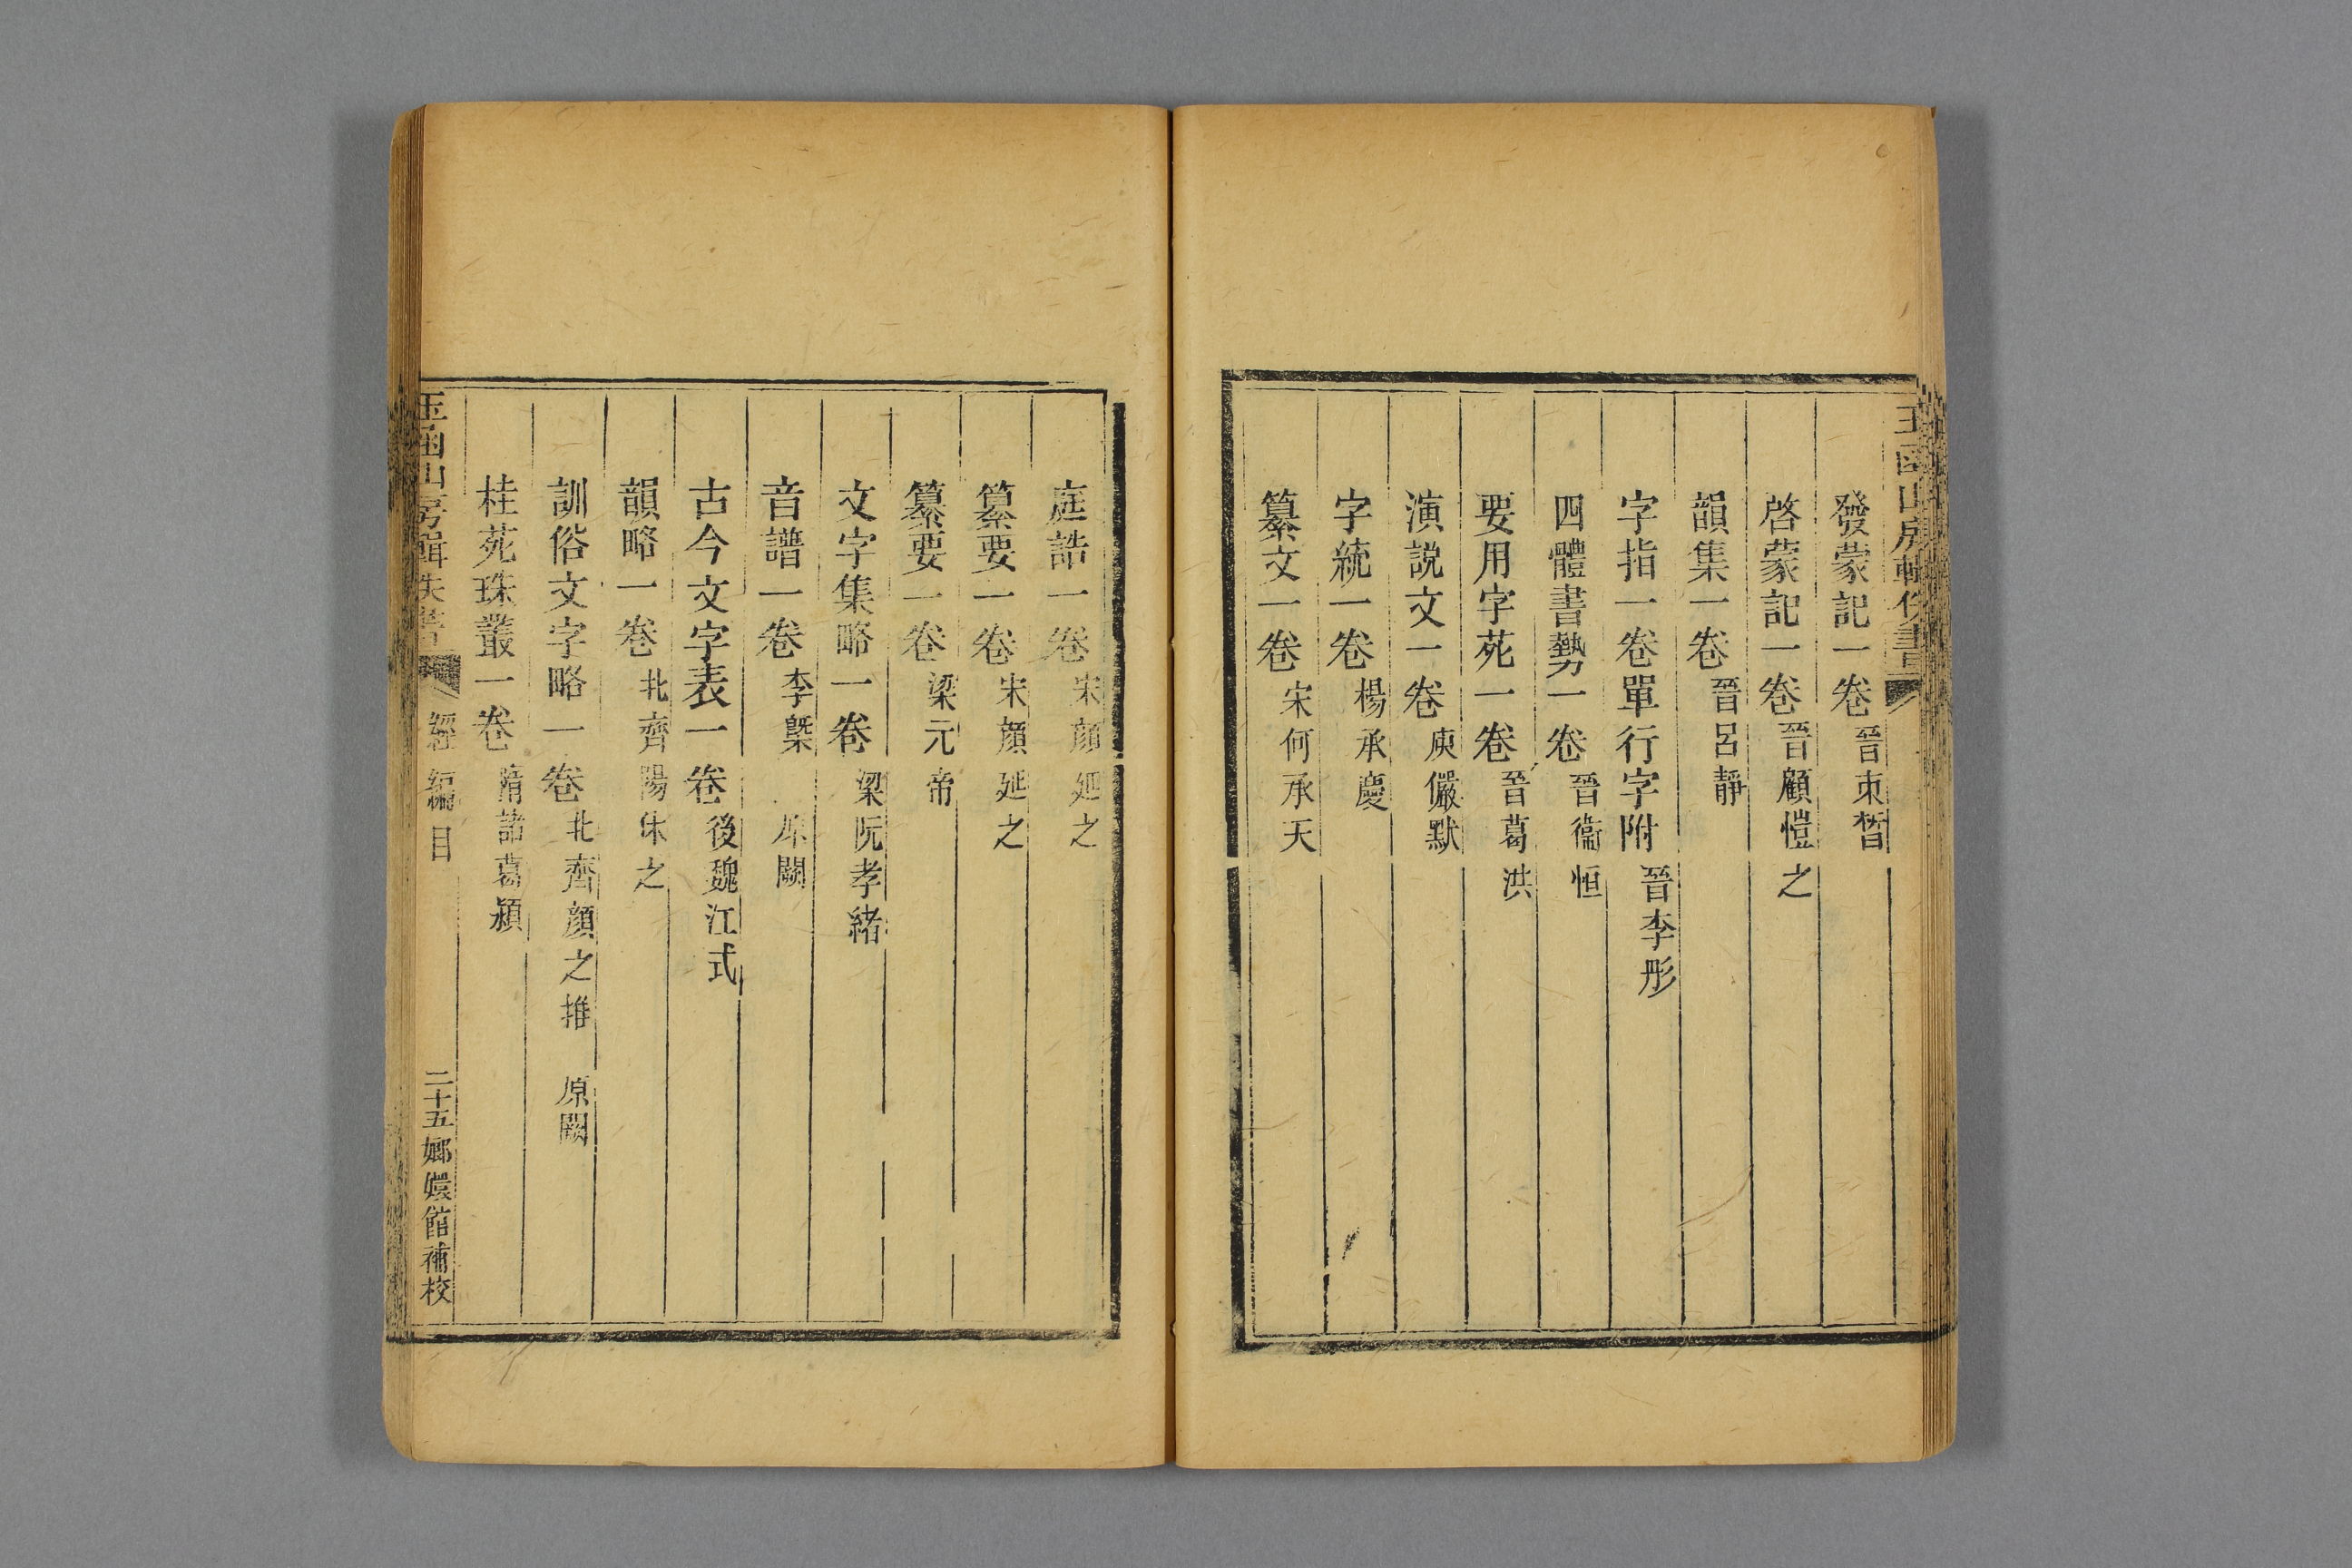 玉函山房輯佚書
發蒙記一卷 晉束晳
啓蒙記一卷 晉顧愷之
韻集一卷 晉呂靜
字指一卷單行字附 晉李彤
四體書勢一卷 晉衞恒
要用字苑一卷 晉葛洪
演説文一卷 庾儼默
字統一卷 楊承慶
纂文一卷 宋何承天
庭誥一卷 宋顔延之
纂要一卷 宋顔延之
纂要一卷 梁元帝
文字集略一卷 梁阮孝緒
音譜一卷 李槩 原闕
古今文字表一卷 後魏江式
韻略一卷 北齊陽休之
訓俗文字略一卷 北齊顔之推 原闕
桂苑珠叢一卷 隋諸葛潁
玉函山房輯佚書 經編目 二十五 嫏嬛館補校